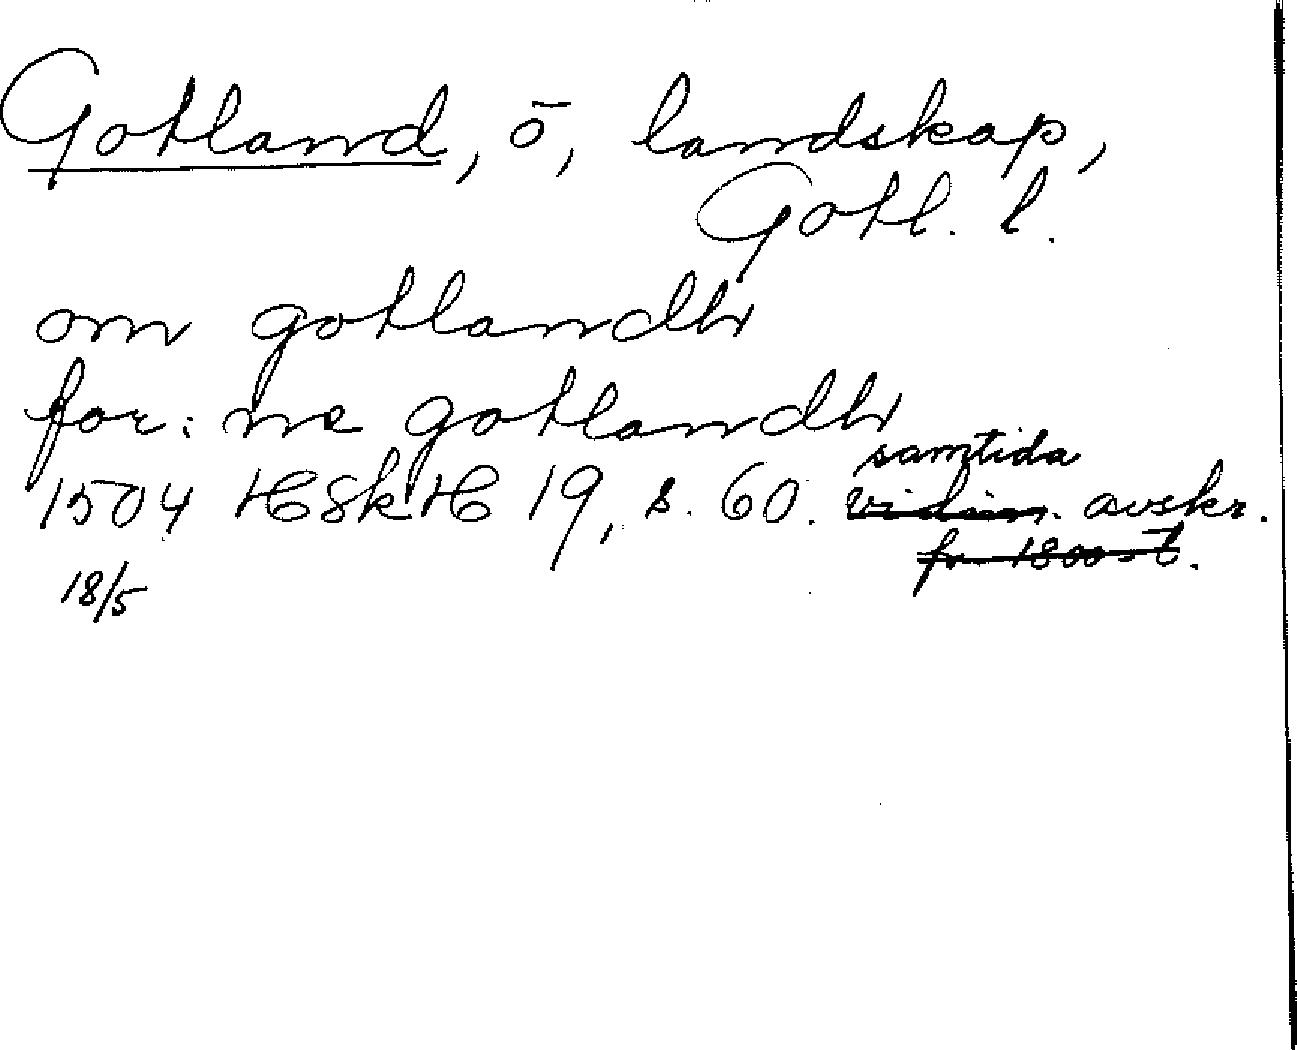 Gotland, ö, landskap,
Gotl. l.
om gotlandh
for: ne gotlandh
samtida
1504 HSkH 19, s. 60. vidim. avskr.
fr. 1800-t.
18/5